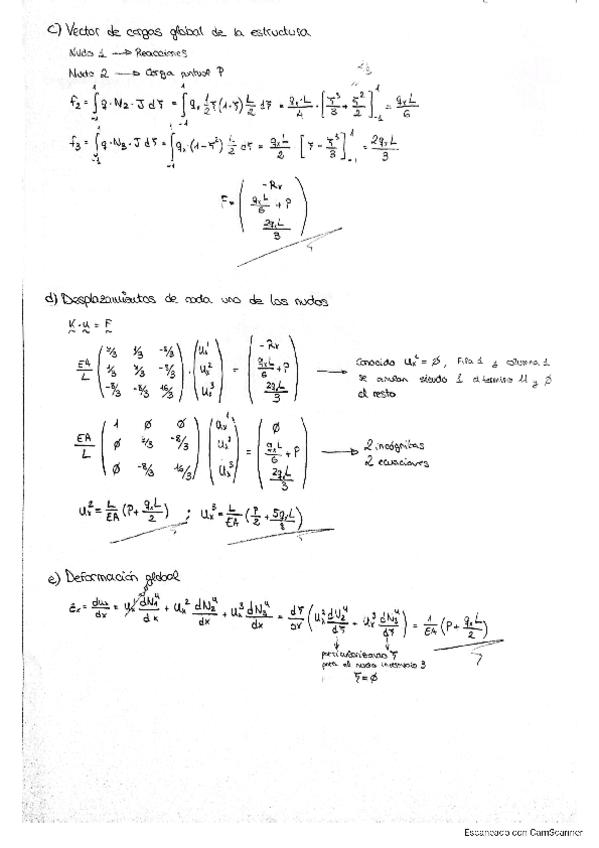 c) Vector de cargas global de la estructura
Nudo 1 → Reacciones
Nudo 2 → Carga puntual P
f₂ = ∫₋₁¹ q · N₂ · J dξ = ∫₋₁¹ qₓ ½ ξ(1+ξ) L/2 dξ = qₓ·L/4 · [ξ³/3 + ξ²/2]₋₁¹ = qₓL/6
f₃ = ∫₋₁¹ q · N₃ · J dξ = ∫₋₁¹ qₓ · (1-ξ²) L/2 dξ = qₓL/2 · [ξ - ξ³/3]₋₁¹ = 2qₓL/3
F = ( -Rₓ ; qₓL/6 + P ; 2qₓL/3 )
d) Desplazamientos de cada uno de los nudos
K · u = F
EA/L ( 7/3 1/3 -8/3 ; 1/3 7/3 -8/3 ; -8/3 -8/3 16/3 ) · ( uₓ¹ ; uₓ² ; uₓ³ ) = ( -Rₓ ; qₓL/6 + P ; 2qₓL/3 ) →
Conocido
fila 1 y columna 1
se anulan siendo 1 el término 11 y ∅
el resto
EA/L ( 1 ∅ ∅ ; ∅ 7/3 -8/3 ; ∅ -8/3 16/3 ) ( uₓ¹ ; uₓ² ; uₓ³ ) = ( ∅ ; qₓL/6 + P ; 2qₓL/3 ) →
2 incógnitas
2 ecuaciones
uₓ² = L/EA (P + qₓL/2) ; uₓ³ = L/EA (P/2 + 5qₓL/8)
e) Deformación global
εₓ = duₓ/dx =
= 1/EA (P + qₓL/2)
particularizando ξ
para el nudo intermedio 3
ξ = ∅
Escaneado con CamScanner